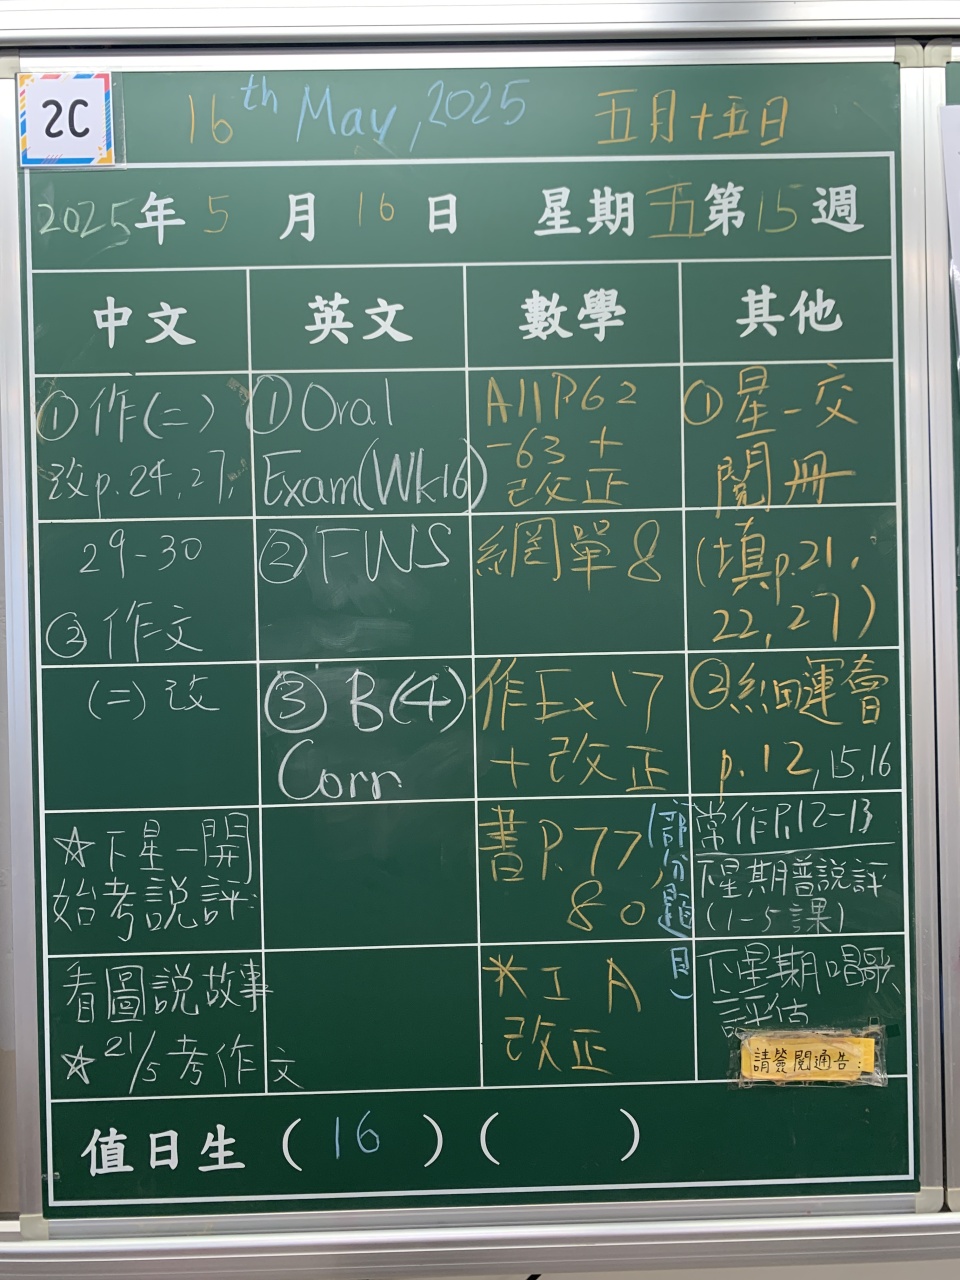 2C
16th May, 2025 五月十五日
2025年5月16日 星期五第15週
中文 英文 數學 其他
①作(二)
改p.24, 27,
29-30
②作文
(二)改
☆下星一開
始考說評:
看圖說故事
☆21/5考作文
①Oral
Exam(Wk16)
②FWS
③B(4)
Corr
A11P62
-63+
改正
網單8
作Ex17
+改正
書P.77,
80
(部分題目)
*IA
改正
①星一交
閱冊
(填p.21,
22, 27)
②細運會
p.12, 15, 16
常作P.12-13
下星期普說評
(1-5課)
下星期唱歌
評估
請簽閱通告:
值日生(16)( )